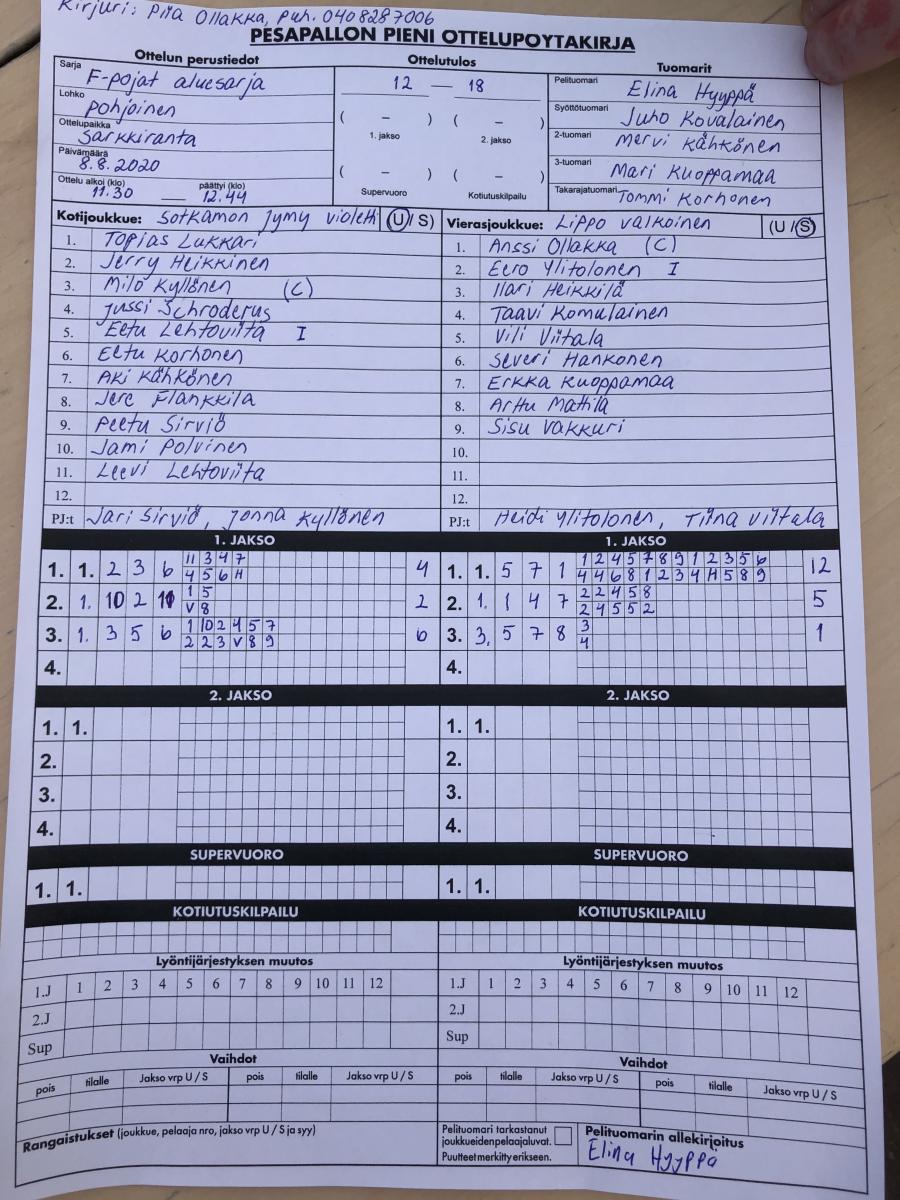 Kirjuri: Piia Ollakka, puh. 0408287006
PESÄPALLON PIENI OTTELUPÖYTÄKIRJA
Ottelun perustiedot Ottelutulos Tuomarit
Sarja F-pojat aluesarja 12 — 18 Pelituomari Elina Hyyppä
Lohko pohjoinen ( – ) ( – ) Syöttötuomari Juho Kovalainen
Ottelupaikka Sarkkiranta 1. jakso 2. jakso 2-tuomari Mervi Kähkönen
Päivämäärä 8.8.2020 ( – ) ( – ) 3-tuomari Mari Kuoppamaa
Ottelu alkoi (klo) 11.30 — päättyi (klo) 12.44 Supervuoro Kotiutuskilpailu Takarajatuomari Tommi Korhonen
Kotijoukkue: Sotkamon Jymy violetti (U / S) Vierasjoukkue: Lippo valkoinen (U / S)
1. Topias Lukkari 1. Anssi Ollakka (C)
2. Jerry Heikkinen 2. Eero Ylitolonen I
3. Milo Kyllönen (C) 3. Ilari Heikkilä
4. Jussi Schroderus 4. Taavi Komulainen
5. Eetu Lehtoviita I 5. Vili Viitala
6. Eetu Korhonen 6. Severi Hankonen
7. Aki Kähkönen 7. Erkka Kuoppamaa
8. Jere Flankkila 8. Arttu Mattila
9. Peetu Sirviö 9. Sisu Vakkuri
10. Jami Polvinen 10.
11. Leevi Lehtoviita 11.
12. 12.
PJ:t Jari Sirviö, Jonna Kyllönen PJ:t Heidi Ylitolonen, Tiina Viitala
1. JAKSO 1. JAKSO
11 3 4 7 1 2 4 5 7 8 9 1 2 3 5 6
1. 1. 2 3 6 4 1. 1. 5 7 1 12
4 5 6 H 4 4 6 8 1 2 3 4 H 5 8 9
1 5 2 2 4 5 8
2. 1. 10 2 11 2 2. 1. 1 4 7 5
V 8 2 4 5 5 2
1 10 2 4 5 7 3
3. 1. 3 5 6 6 3. 3. 5 7 8 1
2 2 3 V 8 9 4
4. 4.
2. JAKSO 2. JAKSO
1. 1. 1. 1.
2. 2.
3. 3.
4. 4.
SUPERVUORO SUPERVUORO
1. 1. 1. 1.
KOTIUTUSKILPAILU KOTIUTUSKILPAILU
Lyöntijärjestyksen muutos Lyöntijärjestyksen muutos
1.J 1 2 3 4 5 6 7 8 9 10 11 12 1.J 1 2 3 4 5 6 7 8 9 10 11 12
2.J 2.J
Sup Sup
Vaihdot Vaihdot
pois tilalle Jakso vrp U / S pois tilalle Jakso vrp U / S pois tilalle Jakso vrp U / S pois tilalle Jakso vrp U / S
Rangaistukset (joukkue, pelaaja nro, jakso vrp U / S ja syy)
Pelituomari tarkastanut
joukkueidenpelaajaluvat.
Puutteet merkitty erikseen.
Pelituomarin allekirjoitus
Elina Hyyppä